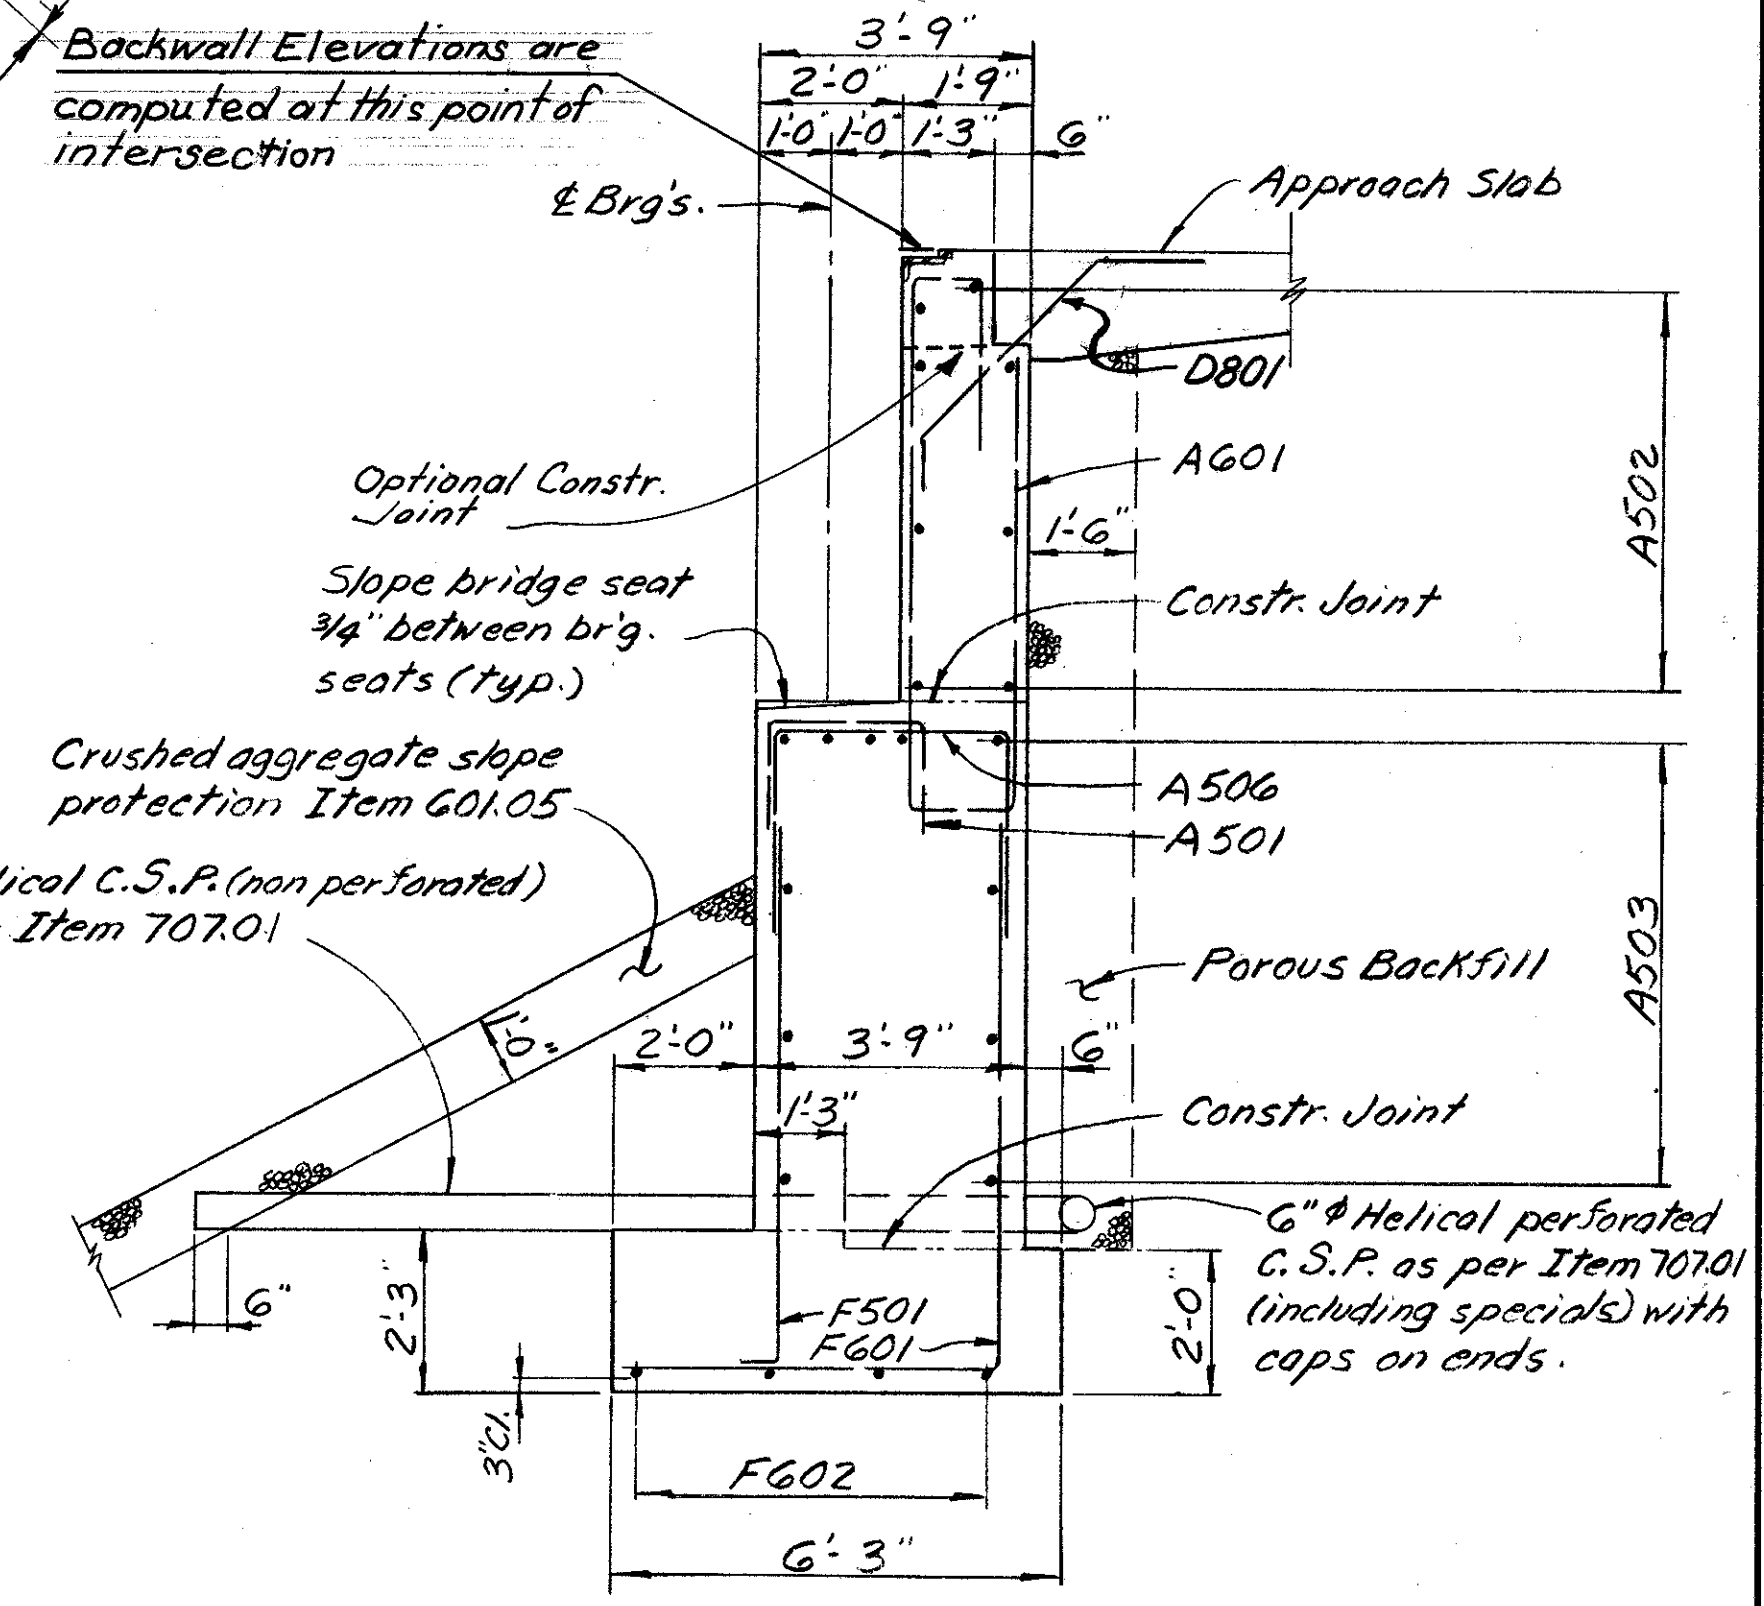 Backwall Elevations are
computed at this point of
intersection
3'-9"
2'-0" 1'-9"
1'-0" 1'-0" 1'-3" 6"
℄ Brg's.
Approach Slab
D801
A601
A502
Optional Constr.
Joint
1'-6"
Slope bridge seat
3/4" between br'g.
seats (typ.)
Constr. Joint
Crushed aggregate slope
protection Item 601.05
A506
A501
lical C.S.P. (non perforated)
Item 707.01
A503
Porous Backfill
1'-0"
2'-0" 3'-9" 6"
1'-3"
Constr. Joint
6" φ Helical perforated
C.S.P. as per Item 707.01
(including specials) with
caps on ends.
6"
2'-3"
F501
F601
2'-0"
3"Cl.
F602
6'-3"